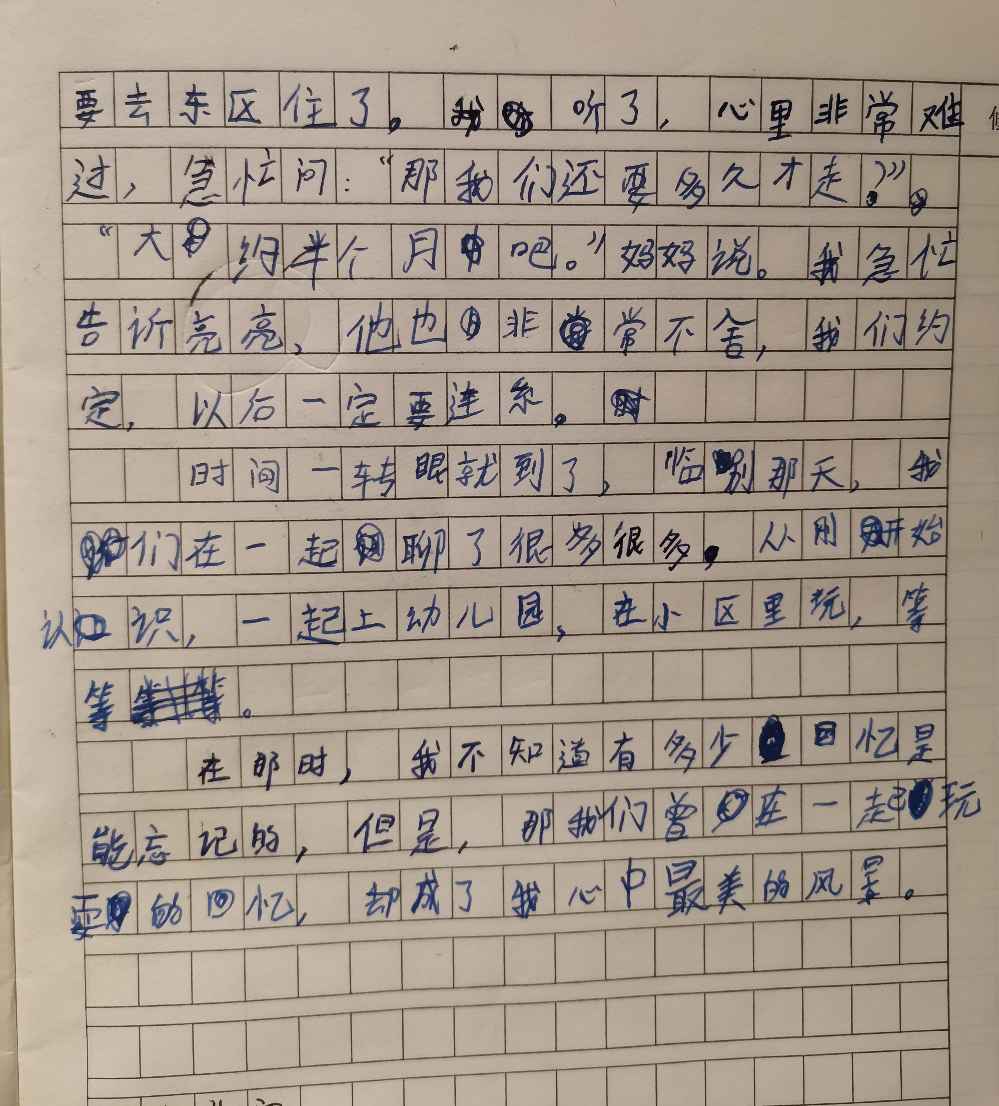 要去东区住了。我听了，心里非常难
过，急忙问：“那我们还要多久才走？”。
“大约半个月吧。”妈妈说。我急忙
告诉亮亮，他也非常不舍，我们约
定，以后一定要连系。
时间一转眼就到了，临别那天，我
们在一起聊了很多很多。从刚开始
认识，一起上幼儿园，在小区里玩，等
等。
在那时，我不知道有多少回忆是
能忘记的，但是，那我们曾在一起玩
耍的回忆，却成了我心中最美的风景。